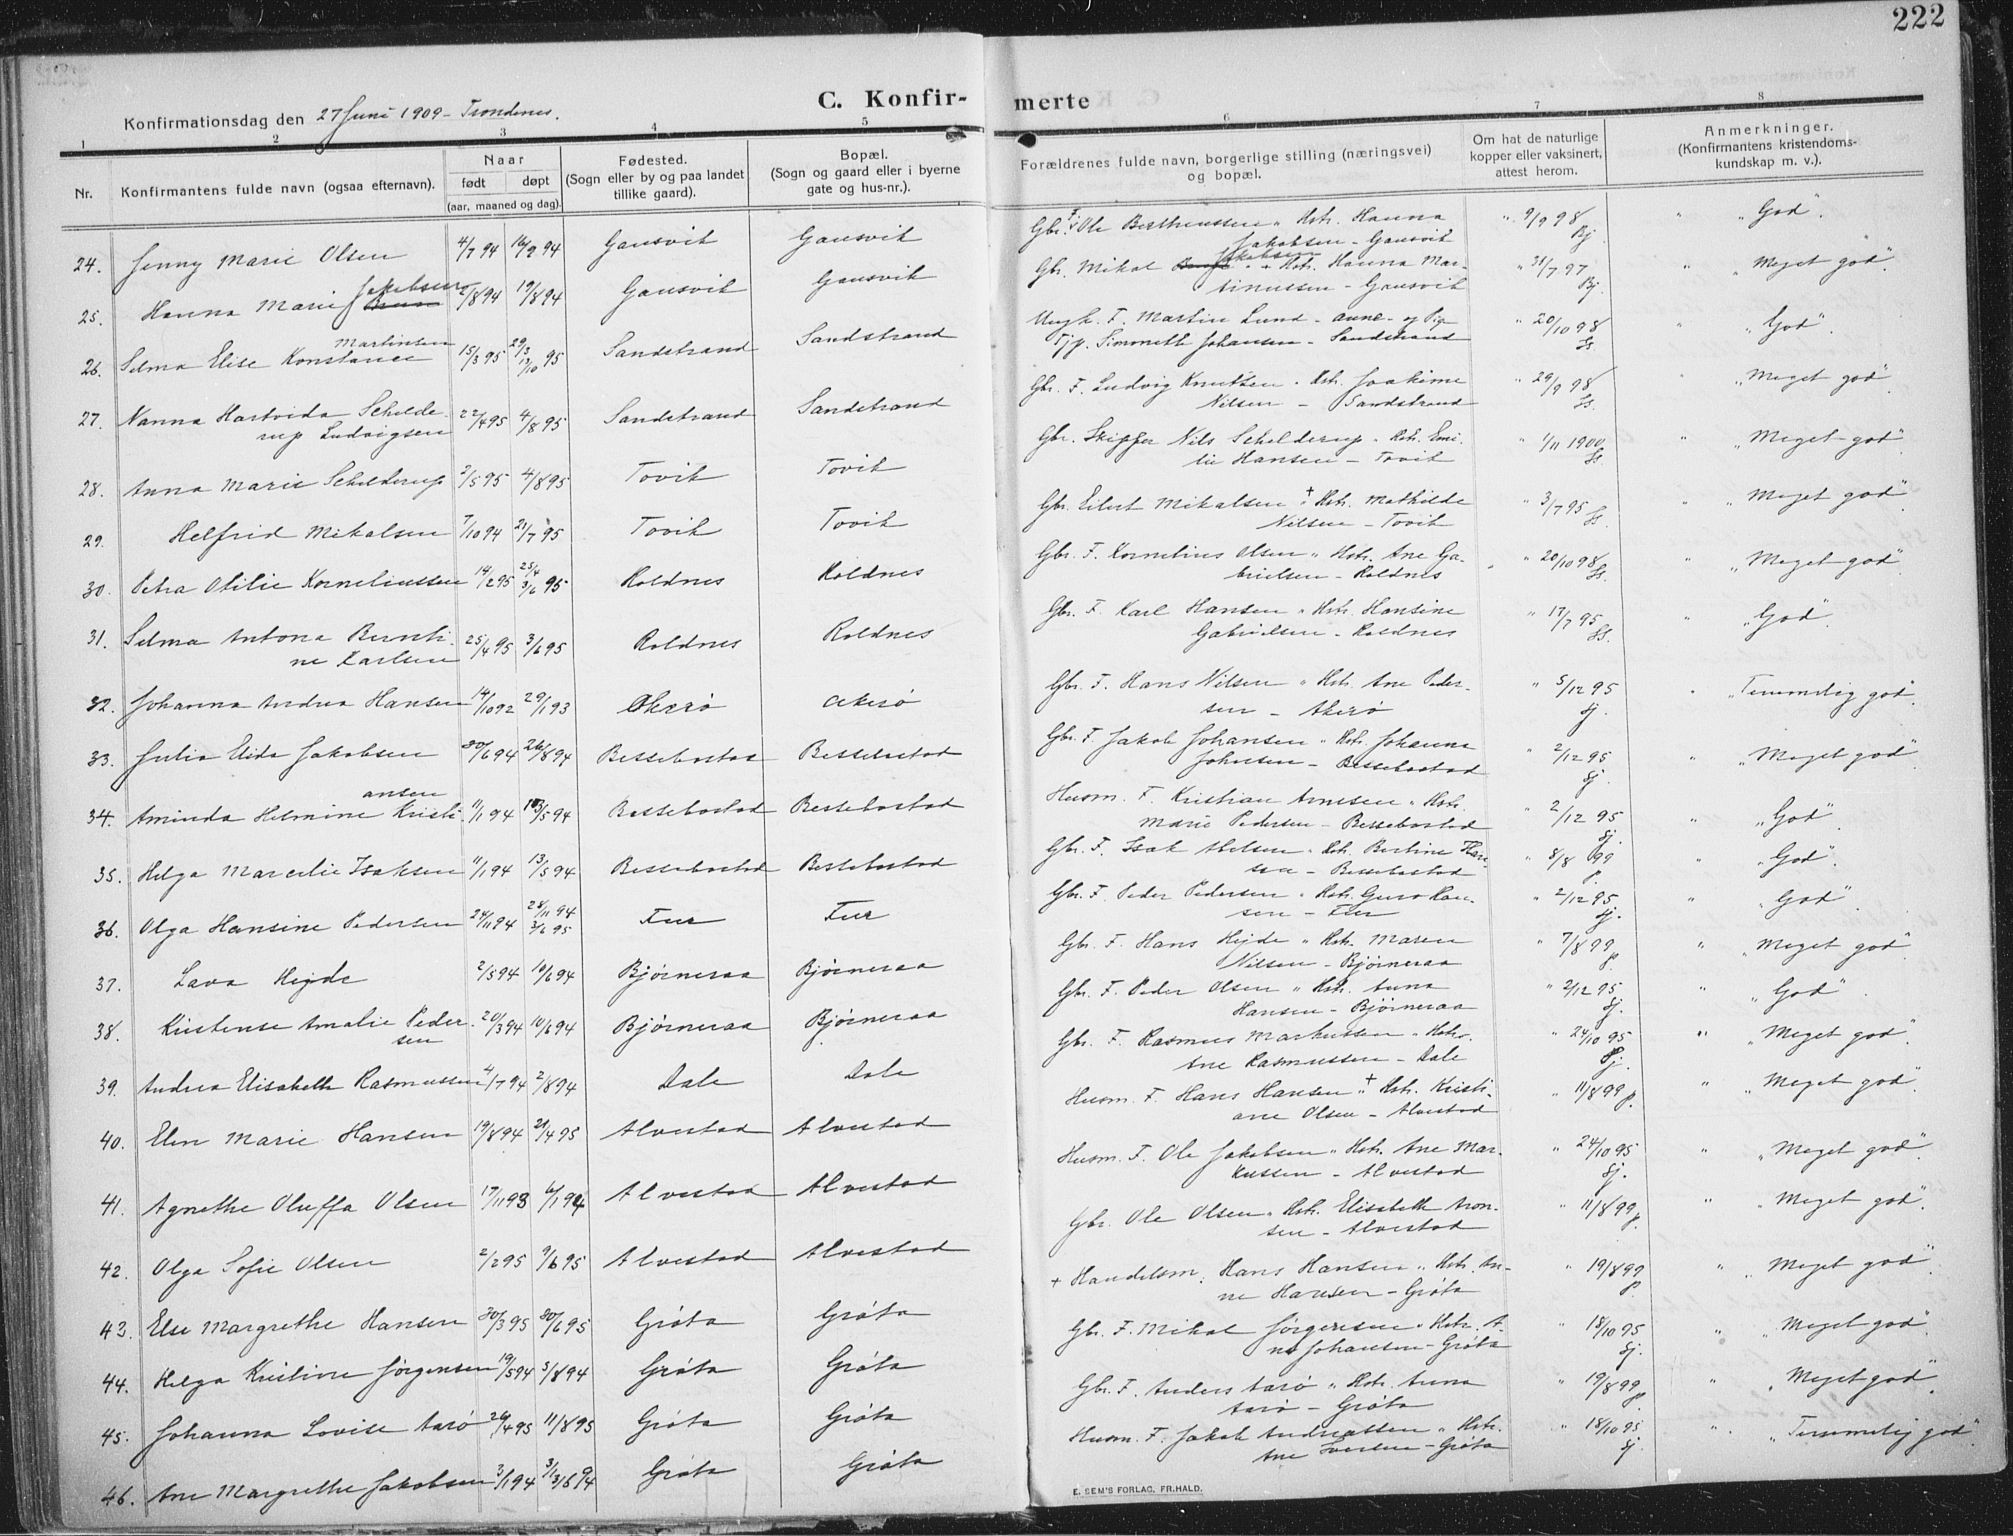 222
C. Konfir-merte
Konfirmationsdag den 27 Juni 1909 - Trondenes.
1 2 3 4 5 6 7 8
Nr.
Konfirmantens fulde navn (ogsaa efternavn).
Naar
født døpt
(aar, maaned og dag).
Fødested.
(Sogn eller by og paa landet
tillike gaard).
Bopæl.
(Sogn og gaard eller i byerne
gate og hus-nr.).
Forældrenes fulde navn, borgerlige stilling (næringsvei)
og bopæl.
Om hat de naturlige
kopper eller vaksinert,
attest herom.
Anmerkninger.
(Konfirmantens kristendoms-
kundskap m. v.).
24. Jenny Marie Olsen 4/7 94 16/9 94 Gausvik Gausvik Gbr. F. Ole Bertheussen " Hstr. Hanna " 9/9 98 " "God".
Jakobsen - Gausvik Bj
Jakobsen
25. Hanna Marie 2/8 94 19/8 94 Gausvik Gausvik Gbr. Mikal Jakobsen " Hstr. Hanna Mar- " 31/7 97 " "Meget god".
tinussen - Gausvik Bj.
Martinsen
26. Selma Elise Konstance 15/3 95 29/3 13/10 95 Sandstrand Sandstrand Ungk. F. Martin Lund - anne - og Pige " 20/10 98 " "God".
Tjp. Simmeth Johansen - Sandstrand Ss.
27. Nanna Hartvida Schilde- 22/4 95 4/8 95 Sandstrand Sandstrand Gbr. F. Ludvig Knutsen " Hstr. Joakime " 29/9 98 " "Meget god".
rup Ludvigsen Nilsen - Sandstrand Ss.
28. Anna Marie Schilderup 2/5 95 4/8 95 Tovik Tovik Gbr. Skipper Nils Schelderup " Hstr. Emi- " 1/11 1900 " "Meget god".
lie Hansen - Tovik Ss.
29. Helfrid Mikalsen 7/10 94 21/7 95 Tovik Tovik Gbr. Eilert Mikalsen " + Hstr. Mathilde " 3/7 95 " "Meget god".
Nilsen - Tovik Ss.
30. Petra Otilie Korneliussen 14/2 95 25/4 3/6 95 Roldnes Roldnes Gbr. F. Kornelius Olsen " Hstr. Ane Ga- " 20/10 98 " "Meget god".
brielsen - Roldnes Ss.
31. Selma Antona Bernti- 25/4 95 3/6 95 Roldnes Roldnes Gbr. F. Karl Hansen " Hstr. Hansine " 17/7 95 " "God".
ne Karlsen Gabrielsen - Roldnes Ss.
32. Johanna Andrea Hansen 14/10 92 29/1 93 Akerø Akerø Gbr. F. Hans Nilsen " Hstr. Ane Peder- " 5/12 95 " "Temmelig god".
sen - Akerø Sj.
33. Julia Elida Jakobsen 30/6 94 26/8 94 Bessebostad Bessebostad Gbr. F. Jakob Johansen " Hstr. Johanna " 2/12 95 " "Meget god".
Johnsen - Bessebostad Sj.
ansen
34. Aminda Helmine Kristi- 11/1 94 13/5 94 Bessebostad Bessebostad Husm. F. Kristian Arnesen " Hstr. " 2/12 95 " "God".
Marie Pedersen - Bessebostad Sj.
35. Helga Marcelie Isaksen 11/1 94 13/5 94 Bessebostad Bessebostad Gbr. F. Isak Nilsen " Hstr. Bertine Han- " 8/8 99 " "God".
sen - Bessebostad P.
36. Olga Hansine Pedersen 24/11 94 28/11 94 3/6 95 Fur Fur Gbr. F. Peder Pedersen " Hstr. Guro Han- " 2/12 95 " "God".
sen - Fur Sj.
37. Lava Hejde 2/5 94 10/6 94 Bjørneraa Bjørneraa Gbr. F. Hans Hejde " Hstr. Maren " 7/8 99 " "Meget god".
Nilsen - Bjørneraa P.
38. Kristense Amalie Peder- 20/3 94 10/6 94 Bjørneraa Bjørneraa Gbr. F. Peder Olsen " Hstr. Anna " 2/12 95 " "God".
sen Hansen - Bjørneraa Sj.
39. Andrea Elisabeth Rasmussen 4/7 94 2/8 94 Dale Dale Gbr. F. Rasmus Markussen " Hstr. " 24/10 95 " "Meget god".
Ane Rasmussen - Dale Sj.
40. Elen Marie Hansen 19/8 94 21/4 95 Alvestad Alvestad Husm. F. Hans Hansen " + Hstr. Kristi- " 11/8 99 P. " "Meget god".
ane Olsen - Alvestad
41. Agnethe Oluffa Olsen 17/11 93 6/1 94 Alvestad Alvestad Husm. F. Ole Jakobsen " Hstr. Ane Mar- " 24/10 95 " "Meget god".
kussen - Alvestad Sj.
42. Olga Sofie Olsen 2/2 95 9/6 95 Alvestad Alvestad Gbr. Ole Olsen " Hstr. Elisabeth Aron- " 11/8 99 P. " "Meget god".
sen - Alvestad
43. Else Margrethe Hansen 30/3 95 30/6 95 Grøta Grøta + Handelsm. Hans Hansen " Hstr. An- " 19/8 99 " "Meget god".
ne Hansen - Grøta P.
44. Helga Kristine Jørgensen 19/5 94 3/8 94 Grøta Grøta Gbr. F. Mikal Jørgensen " Hstr. A- " 18/10 95 " "Meget god".
ne Johansen - Grøta Sj.
45. Johanna Lovise Aarø 26/4 95 11/8 95 Grøta Grøta Gbr. F. Anders Aarø " Hstr. Anna " 19/8 99 " "Meget god".
Aarø - Grøta P.
46. Ane Margrethe Jakobsen 3/1 94 Grøta Grøta Husm. F. Jakob Andreassen " Hstr. " 18/10 95 " "Temmelig god".
Ane Iversen - Grøta Sj.
E. SEM'S FORLAG, FR.HALD.